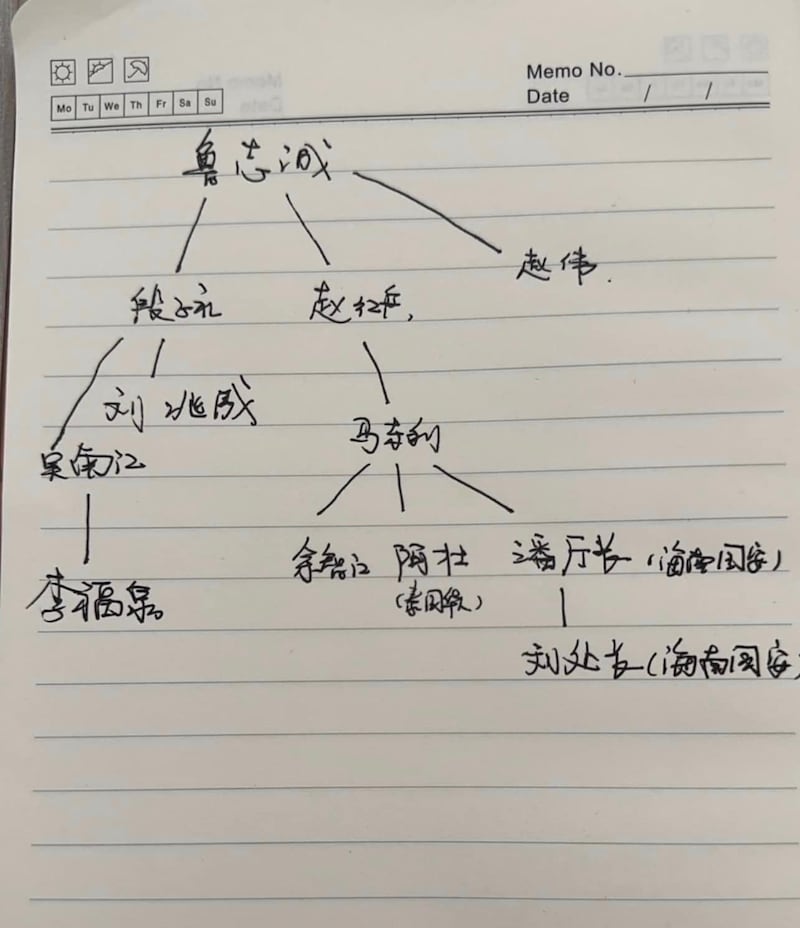 Memo No.
Mo Tu We Th Fr Sa Su
Date / /
鲁志诚
段子永 赵红兵, 赵伟.
刘兆成
吴南江 马本利
李福泉 余智江 阿壮 潘厅长(海南国安)
(李国华)
刘处长(海南国安)